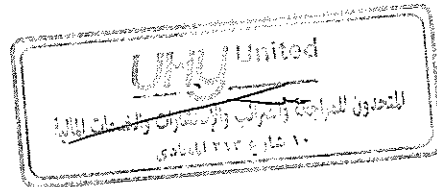 UHY United
المتحدون للمراجعة والضرائب والإستشارات والخدمات المالية
١٠ شارع ٢١٣ المعادي